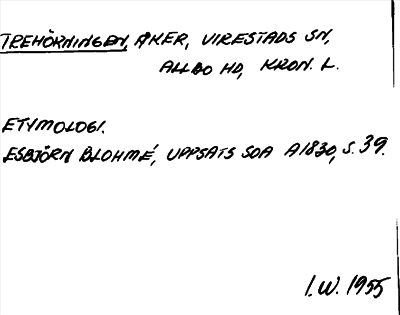 TREHÖRNINGEN, ÅKER, VIRESTADS SN,
ALLBO HD, KRON. L.
ETYMOLOGI.
ESBJÖRN BLOHMÉ, UPPSATS SOA A1830, S. 39.
I.W. 1955